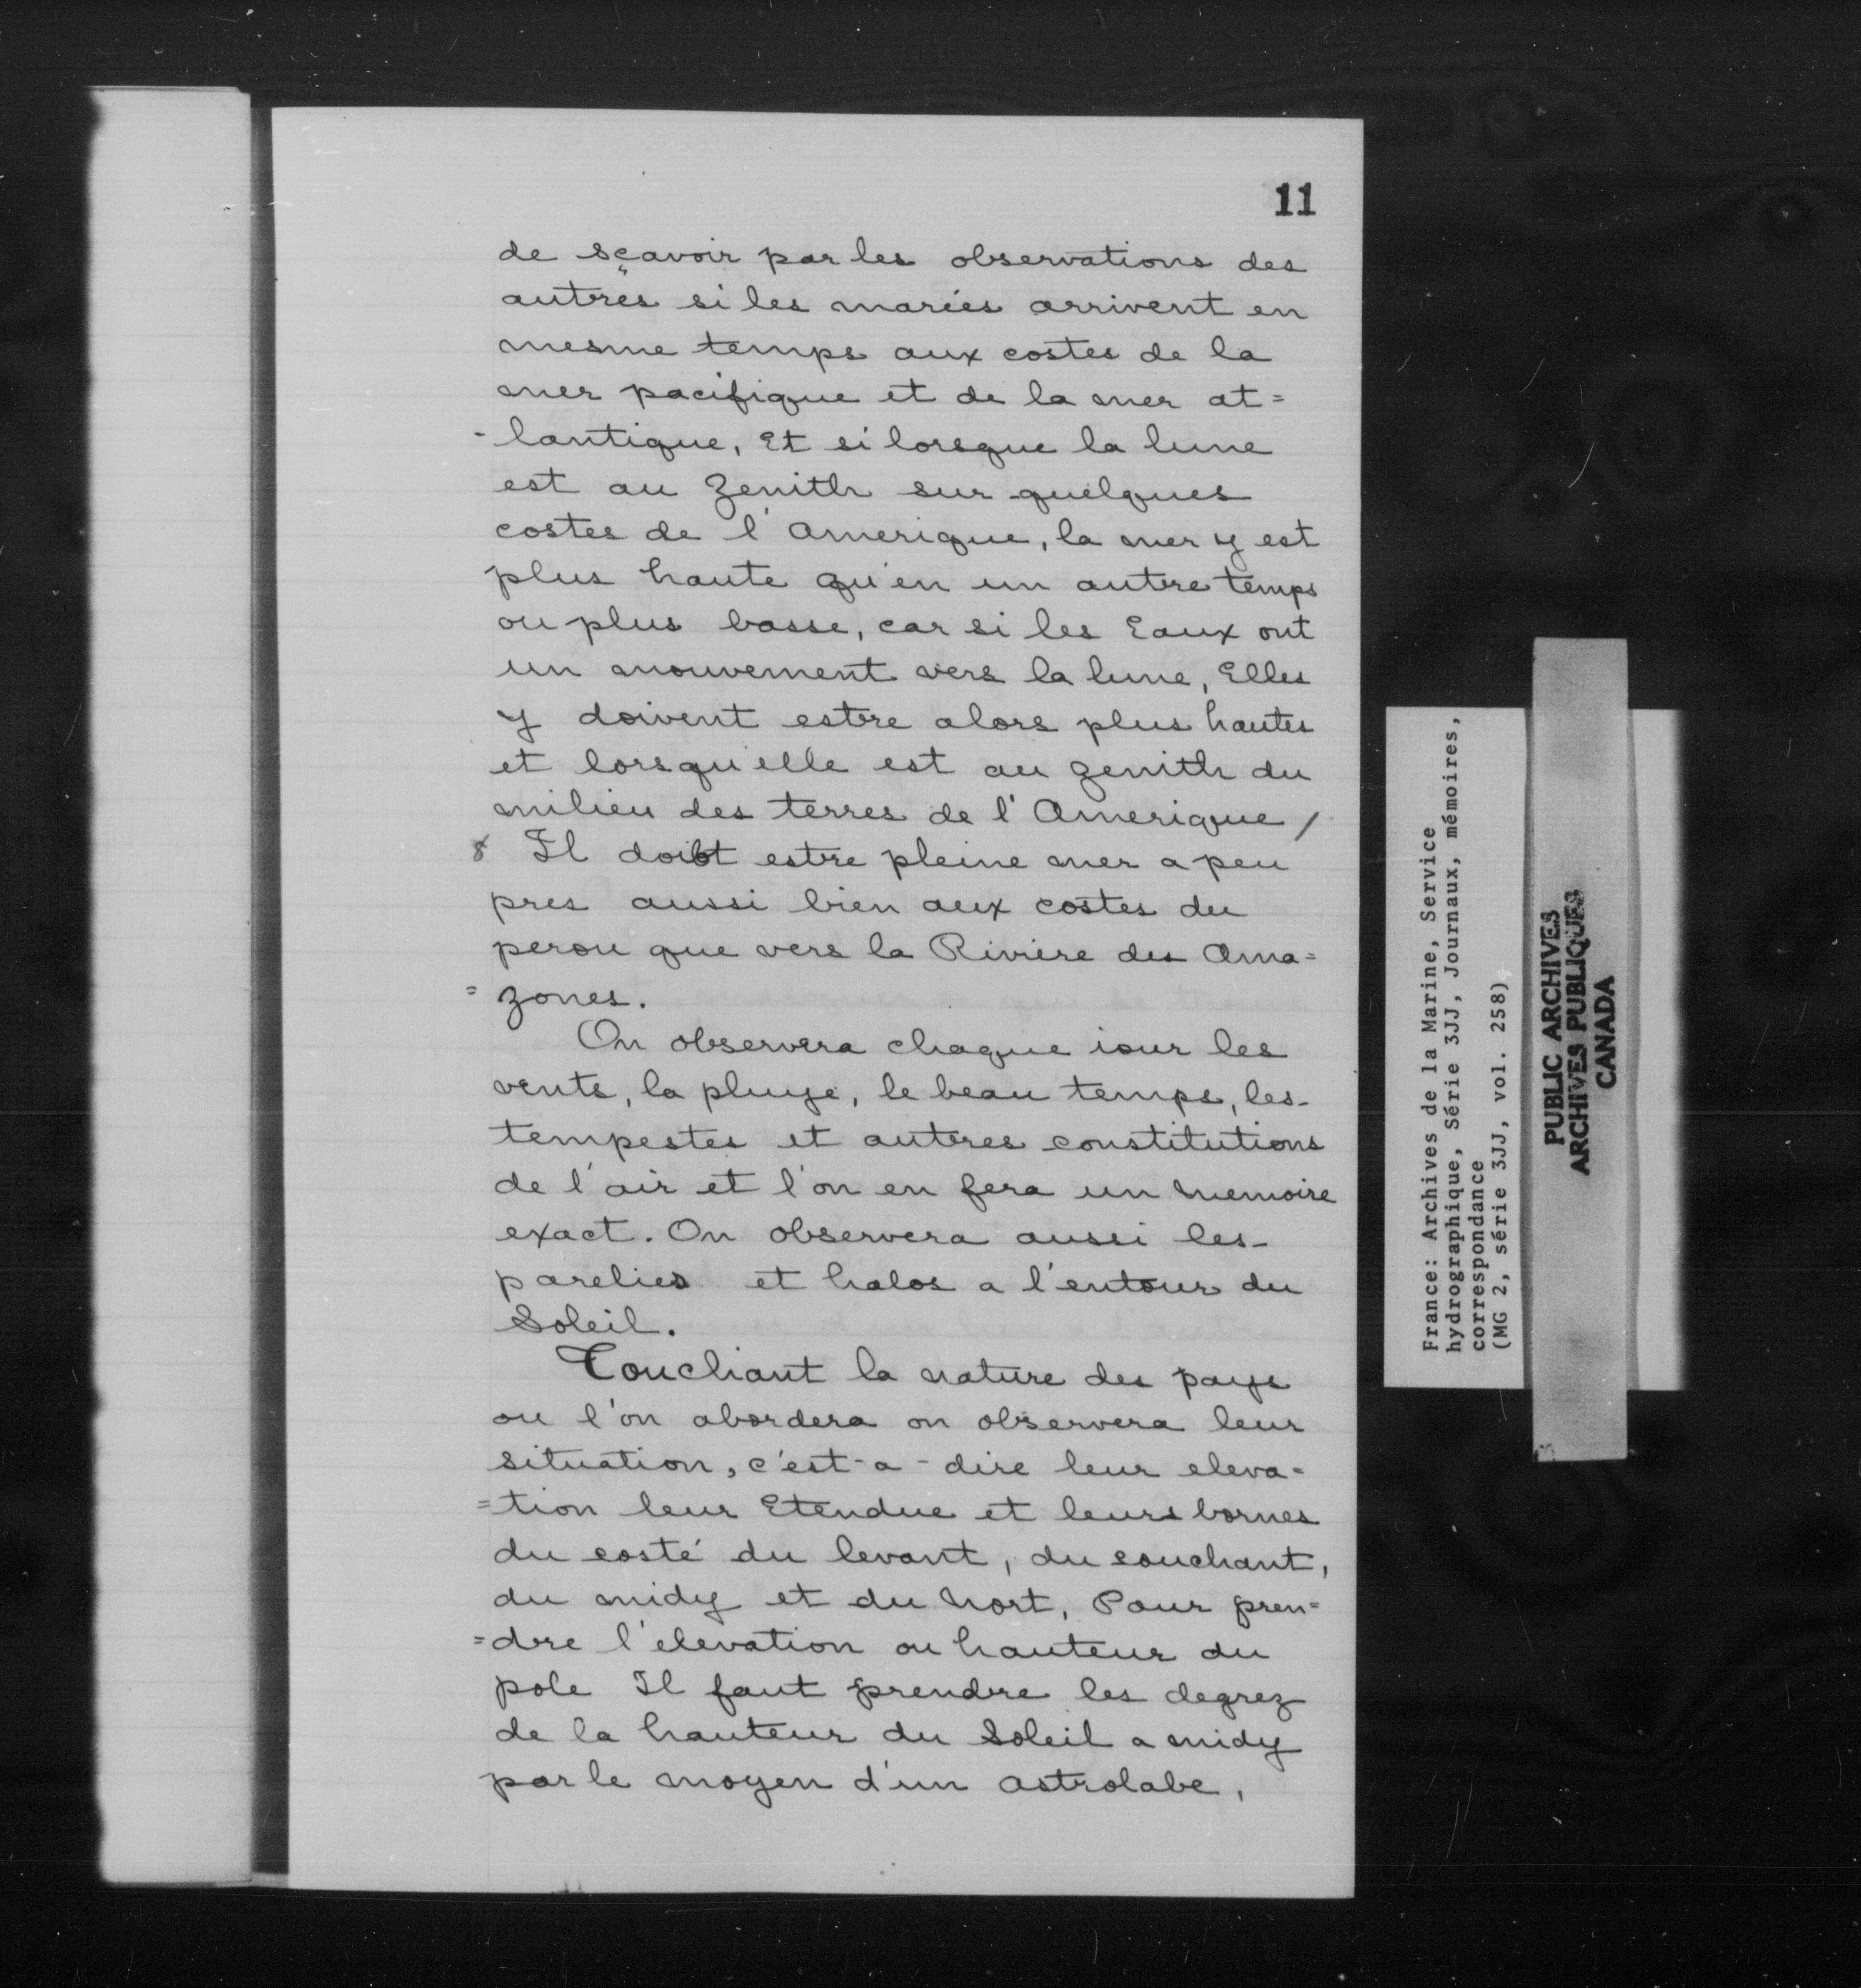 11
de sçavoir par les observations des
autres si les marées arrivent en
mesme temps aux costes de la
mer pacifique et de la mer at=
-lantique, Et si lorsque la lune
est au Zenith sur quelques
costes de l'Amerique, la mer y est
plus haute qu'en un autre temps
ou plus basse, car si les Eaux ont
un mouvement vers la lune, Elles
y doivent estre alors plus hautes
et lorsqu'elle est au zenith du
milieu des terres de l'Amerique /
Il doibt estre pleine mer a peu
pres aussi bien aux costes du
perou que vers la Rivière des Ama=
=zones.
On observera chaque iour les
vents, la pluye, le beau temps, les-
tempestes et autres constitutions
de l'air et l'on en fera un memoire
exact. On observera aussi les-
parelies et halos a l'entour du
Soleil.
Touchant la nature des pays
ou l'on abordera on observera leur
situation, c'est-a-dire leur eleva=
=tion leur Etendue et leurs bornes
du costé du levant, du couchant,
du midy et du nort, Pour pren=
=dre l'elevation ou hauteur du
pole Il faut prendre les degrez
de la hauteur du Soleil a midy
par le moyen d'un astrolabe,
France: Archives de la Marine, Service
hydrographique, Série 3JJ, Journaux, mémoires,
correspondance
(MG 2, série 3JJ, vol. 258)
PUBLIC ARCHIVES
ARCHIVES PUBLIQUES
CANADA